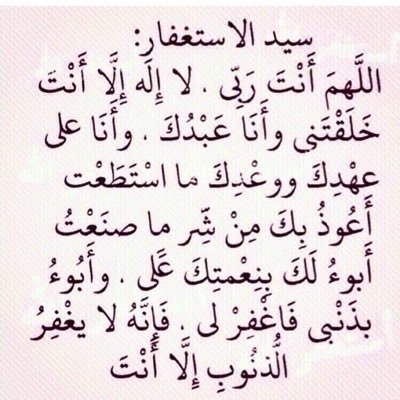 سيد الاستغفار:
اللَّهمَ أَنْتَ رَبِّى . لا إِلَه إِلَّا أَنْتَ
خَلَقْتَنى وأَنَا عَبْدُكَ . وأَنَا على
عهْدِكَ ووعْدِكَ ما اسْتَطَعْت
أَعُوذُ بِكَ مِنْ شِّر ما صنَعْتُ
أَبوءُ لَكَ بِنِعْمتِكَ عَلَى . وأَبُوءُ
بذَنْبى فَاغْفِرْ لى . فَإِنَّهُ لا يغْفِرُ
الُّذنُوبِ إِلَّا أَنْتَ